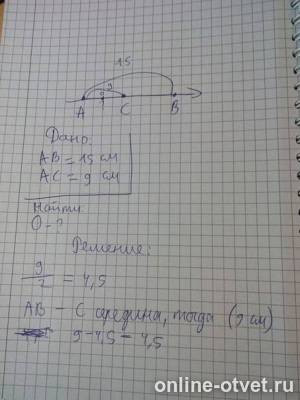 15
9
A C B
Дано:
AB = 15 см
AC = 9 см
Найти
O - ?
Решение:
9/2 = 4,5
AB – C середина, тогда (9 см)
9 - 4,5 = 4,5
online-otvet.ru